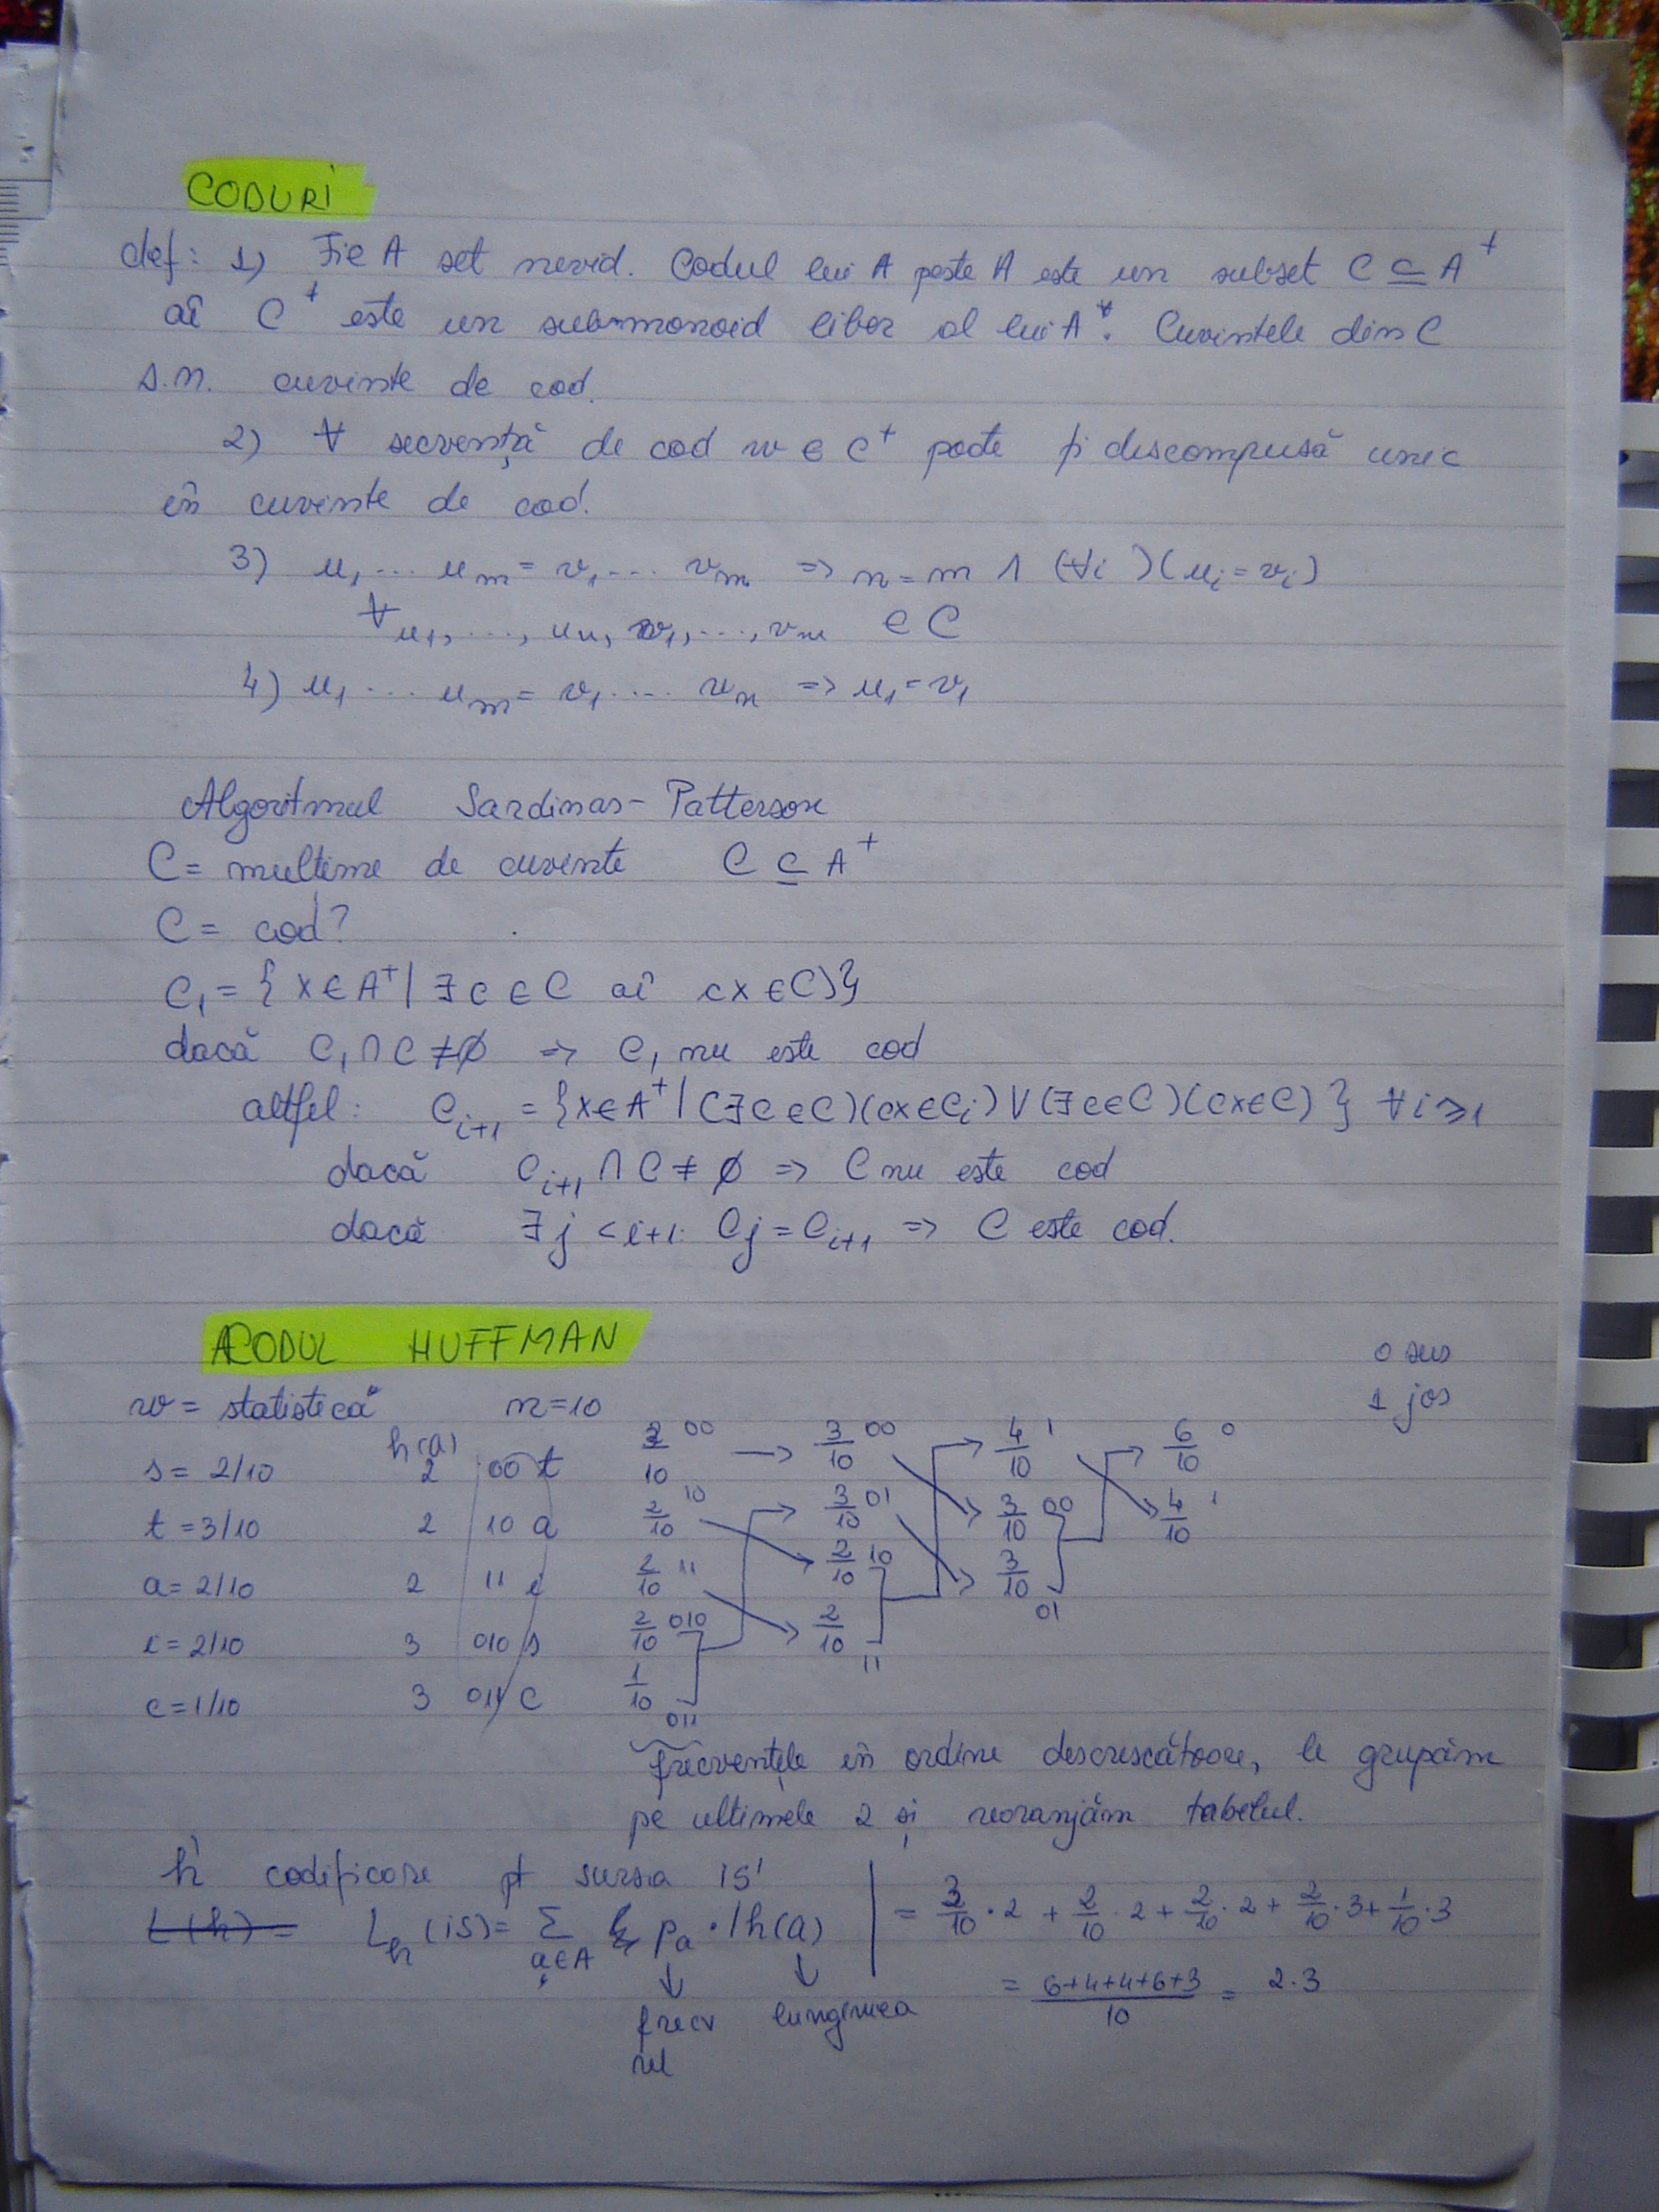 CODURI
def: 1) Fie A set nevid. Codul lui A peste A este un subset C ⊆ A⁺
aî C⁺ este un submonoid liber al lui A*. Cuvintele din C
s.n. cuvinte de cod.
2) ∀ secvență de cod w ∈ C⁺ poate fi discompusă unic
în cuvinte de cod.
3) u₁ ... uₘ = v₁ ... vₘ => n = m ∧ (∀i)(uᵢ = vᵢ)
∀ u₁, ..., uₙ, v₁, ..., vₘ ∈ C
4) u₁ ... uₘ = v₁ ... vₙ => u₁ = v₁
Algoritmul Sardinas-Patterson
C = mulțime de cuvinte C ⊆ A⁺
C = cod?
C₁ = { x ∈ A⁺ | ∃ c ∈ C aî cx ∈ C)}
dacă C₁ ∩ C ≠ ∅ => C₁ nu este cod
altfel: Cᵢ₊₁ = {x ∈ A⁺ | (∃ c ∈ C)(cx ∈ Cᵢ) ∨ (∃ c ∈ C)(cx ∈ C) } ∀ i ≥ 1
dacă Cᵢ₊₁ ∩ C ≠ ∅ => C nu este cod
dacă ∃ j < i+1: Cⱼ = Cᵢ₊₁ => C este cod.
CODUL HUFFMAN
0 sus
w = statistică n = 10
1 jos
h(a)
s = 2/10 2 00 t 3/10 00 → 3/10 00 4/10 1 6/10 0
t = 3/10 2 10 a 2/10 10 3/10 01 3/10 00 4/10 1
a = 2/10 2 11 i 2/10 11 2/10 10 3/10 01
i = 2/10 3 010 s 2/10 010 2/10 11
c = 1/10 3 011 c 1/10 011
frecvențele în ordine descrescătoare, le grupăm
pe ultimele 2 și rearanjăm tabelul.
h codificare pt sursa IS
L(h) = L_h (IS) = Σ a∈A pₐ · |h(a) = 3/10 · 2 + 2/10 · 2 + 2/10 · 2 + 2/10 · 3 + 1/10 · 3
frecv rel lungimea = (6+4+4+6+3)/10 = 2.3